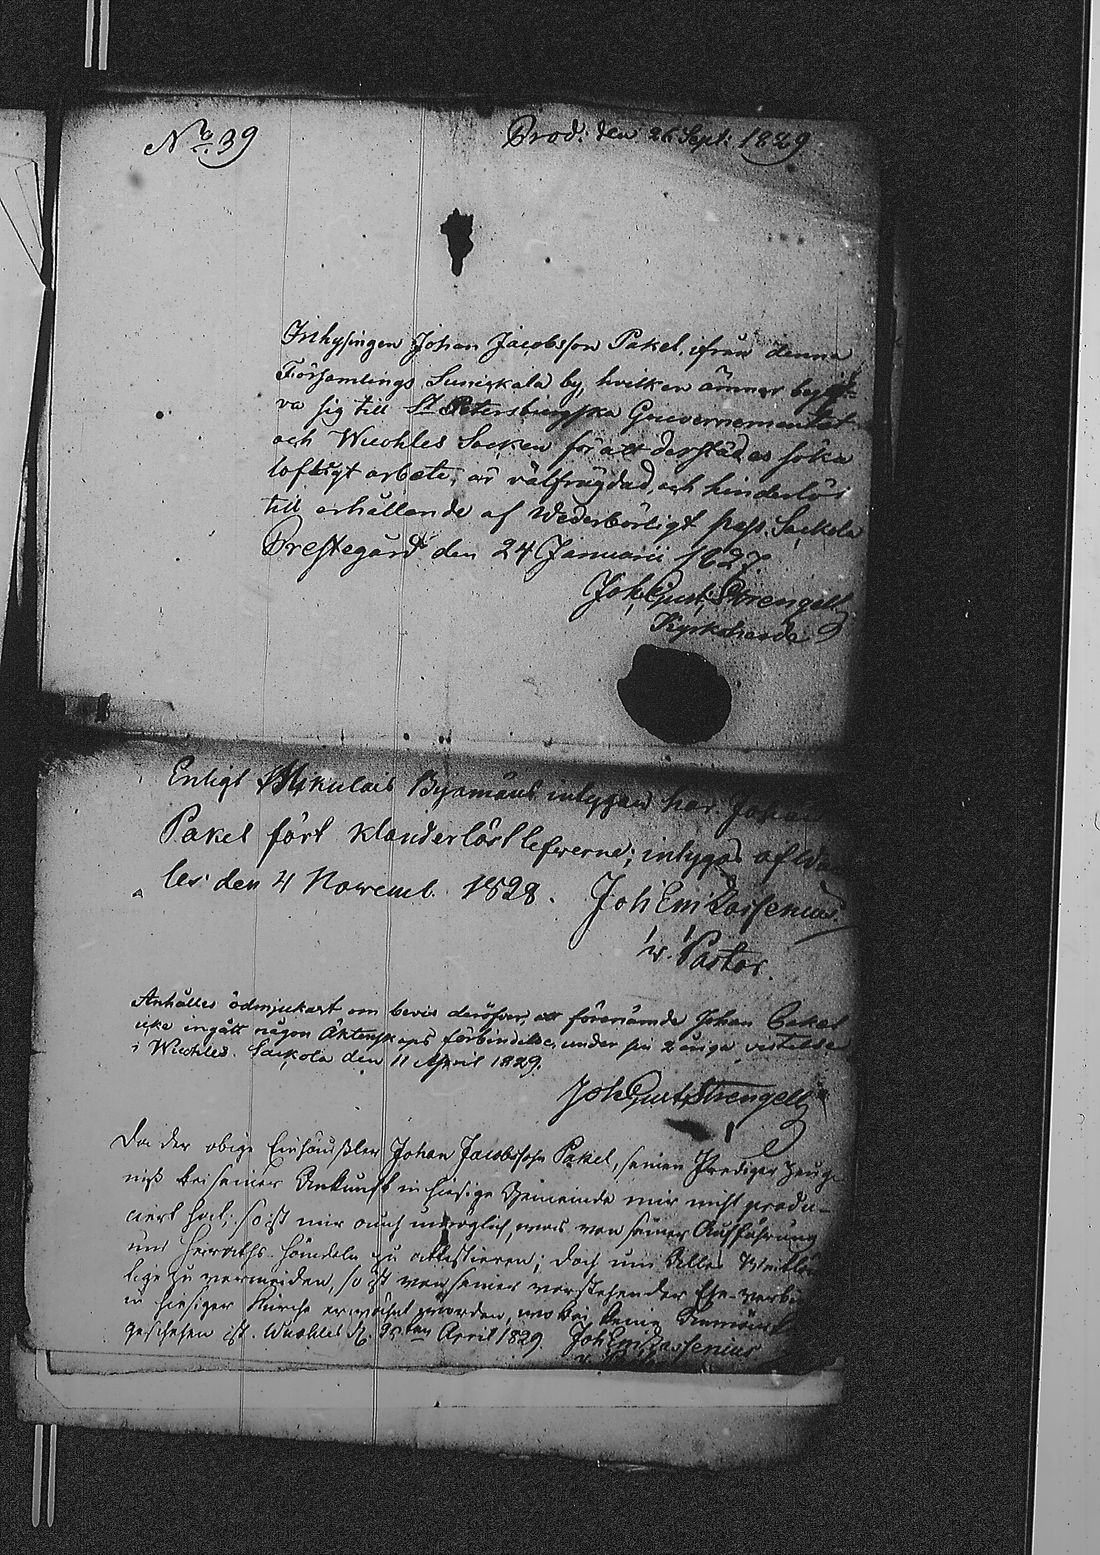 No. 39
Prod. den 26 Sept. 1829
Inhysingen Johan Jacobsson Pakel, ifrån denna
Församlings Suniskala by, hvilken ämnar begif-
va sig till St Petersburgska Gouvernementet
och Wuohles Socken för att derstädes söka
lofligt arbete, är välfrägdad, och hinderlös
till erhållande af Wederbörligt pass. Sackola
Prestegård den 24 Januarii 1827.
Joh. Gust. Strengell
Kyrkoherde
Enligt Nikulais Byamäns intygan har Johan
Pakel fört klanderlöst lefwerne; intygas af Wuo
les den 4 Novemb. 1828. Joh. Em. Zassenius
v. Pastor.
Anhålles ödmjukast om bevis deröfver, att förenämde Johan Pakel
icke ingått någon Äktenskaps förbindelse, under sin 2 åriga vistelse
i Wuohles. Sackola den 11 April 1829.
Joh. Gust. Strengell
Da der obige Einhäusler Johan Jacobsohn Pakel, seinen Prediger Zeug-
niß bei seiner Ankunft in hiesige Gemeinde mir nicht produ-
ciert hat; so ist mir auch unmöglich, etwas von seiner Aufführung
und Heiraths-Händeln zu attestieren; doch um Alles
zu vermeiden, so ist von seiner vorstehender Ehe-verbin
in hiesiger Kirche erwähnt worden, wobei keine
geschehen ist. Wuohles d. April 1829. Joh. Em. Zassenius